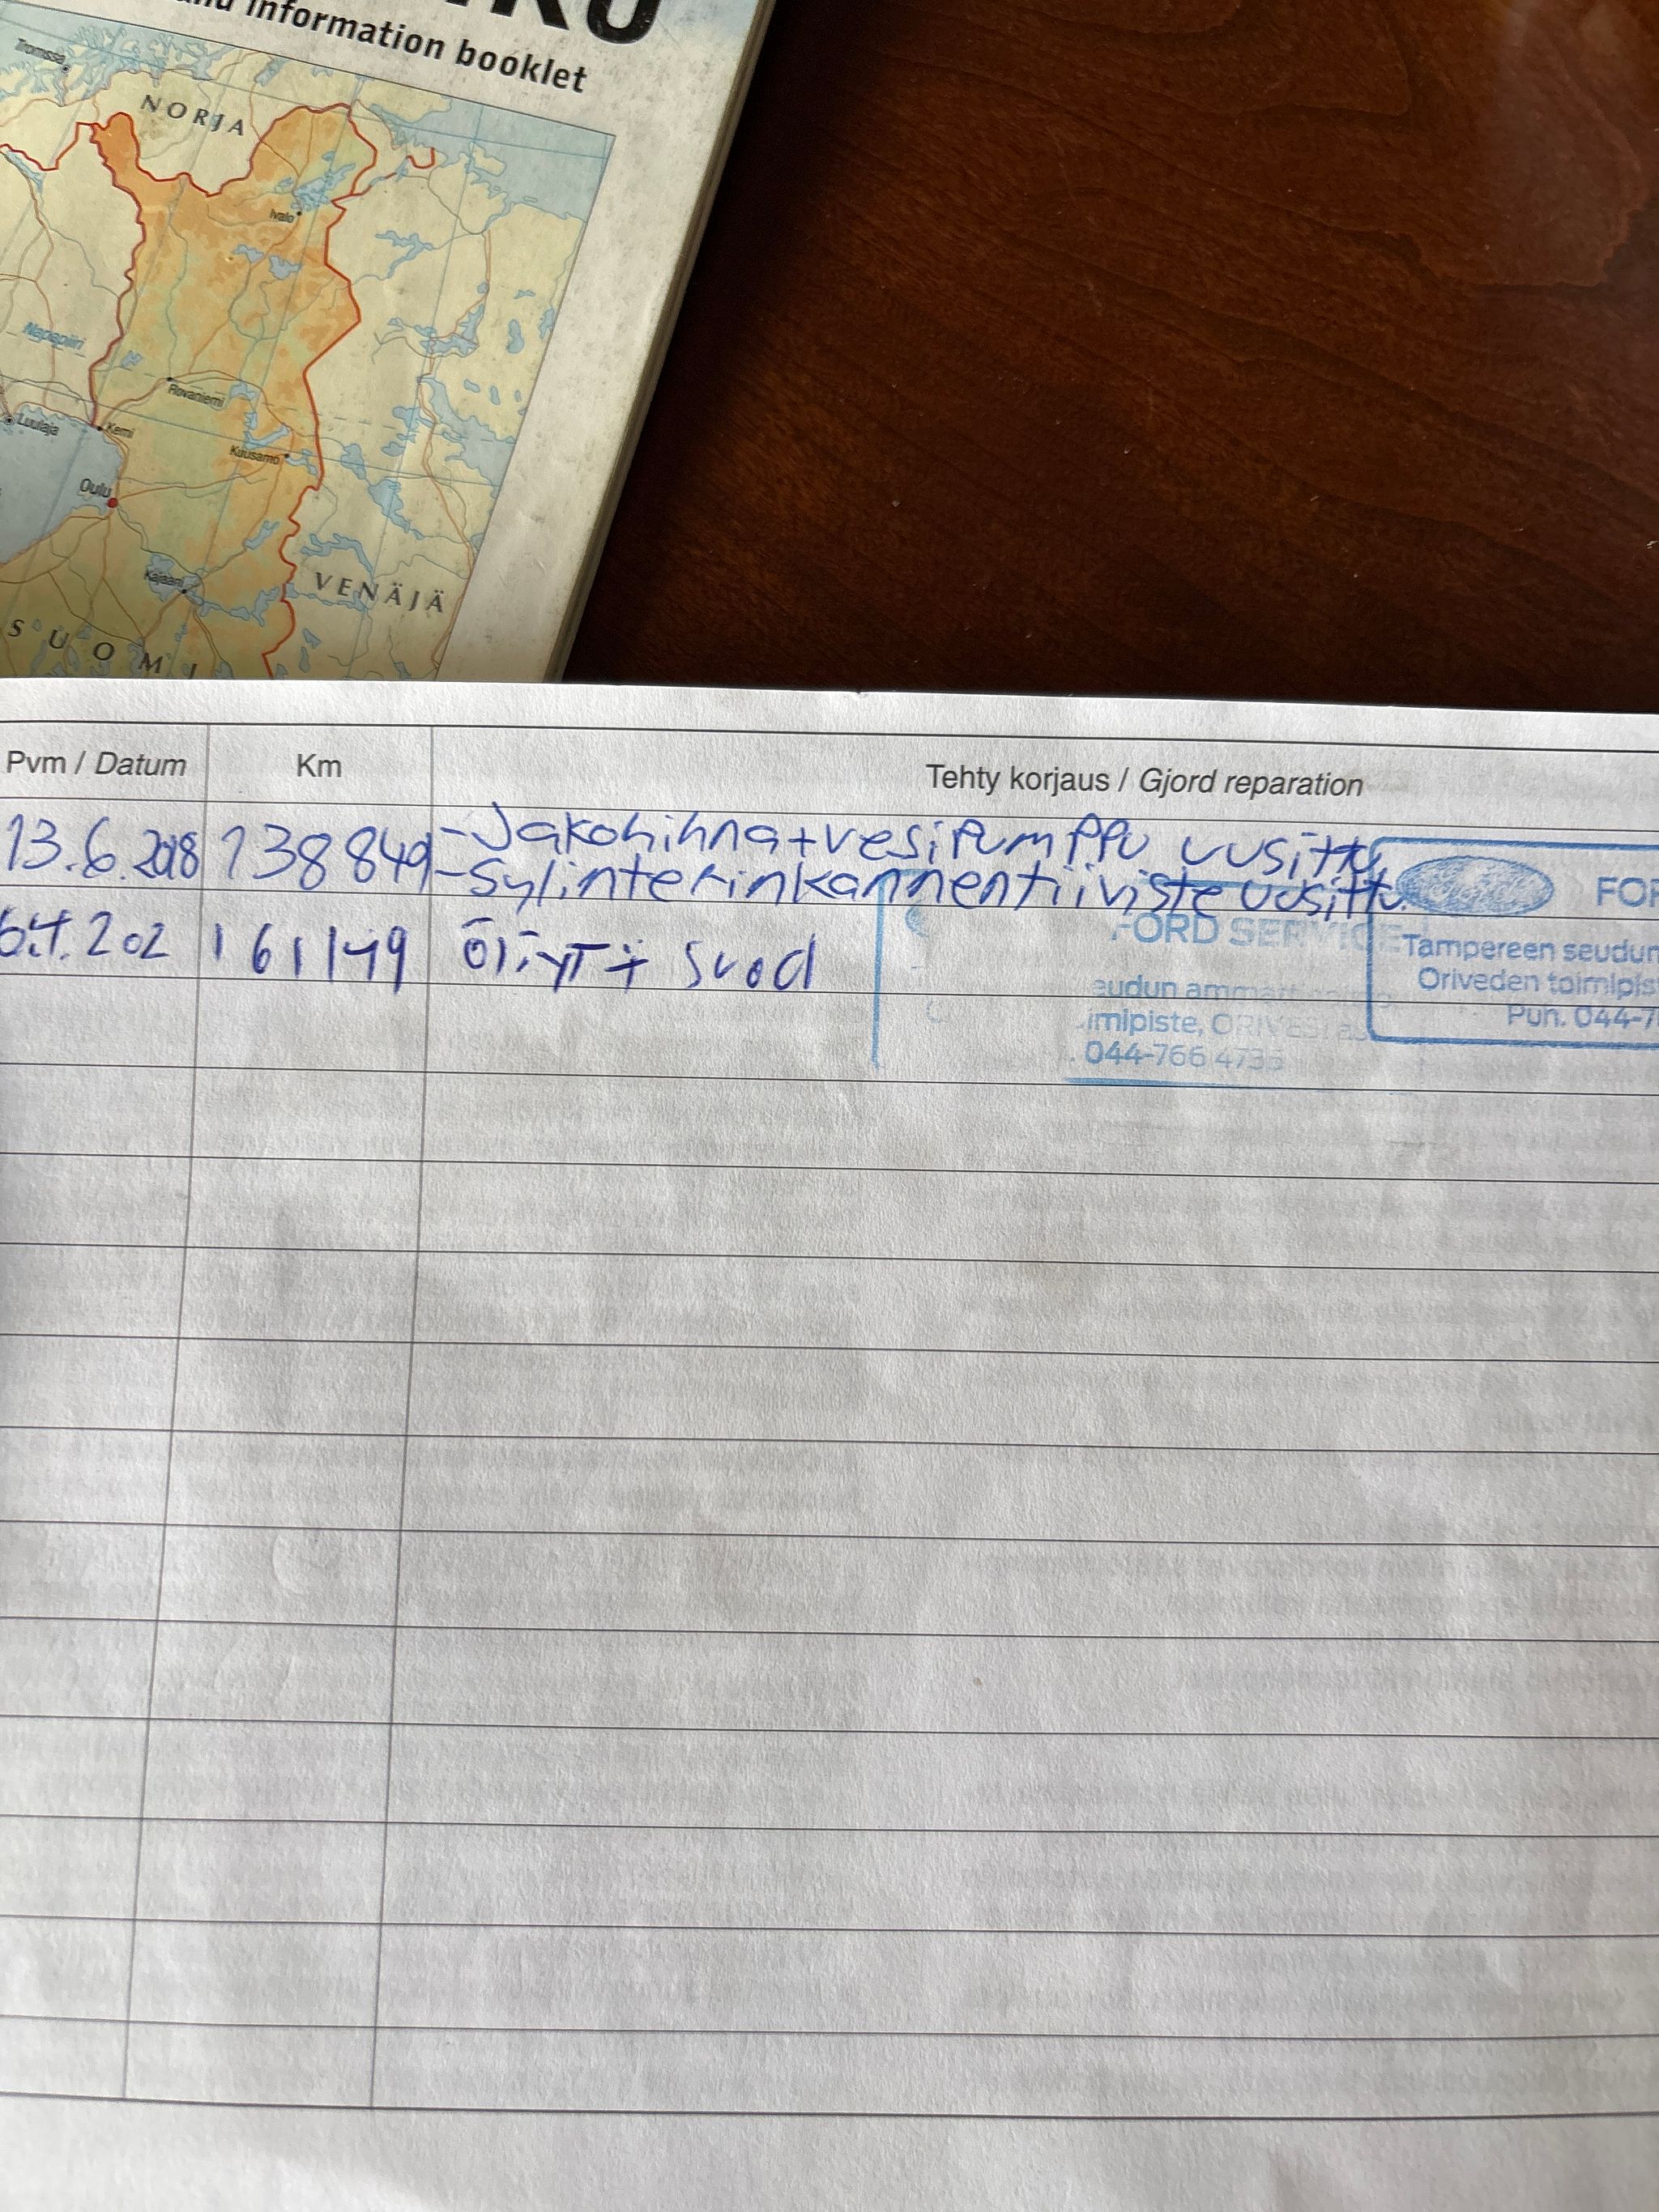 information booklet
Tromssa
NORJA
Ivalo
Napapiiri
Rovaniemi
Luulaja
Kemi
Kuusamo
Oulu
Kajaani
VENÄJÄ
SUOMI
Pvm / Datum Km Tehty korjaus / Gjord reparation
13.6.2018 138849 -Jakohihna+vesipumppu uusittu
-Sylinterinkannentiiviste uusittu.
161149 öljyt + suod
FORD SERVICE
eudun
imipiste, ORIVESI
044-766 4733
FOR
Tampereen seudun
Oriveden toimipis
Puh. 044-7